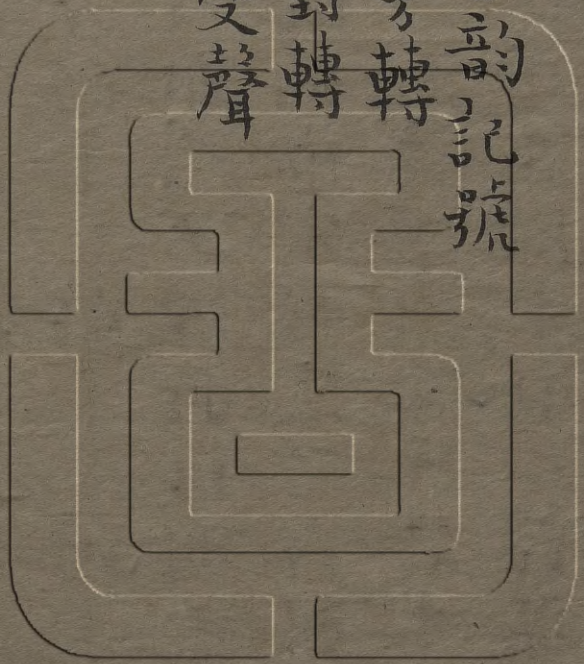 韵記號
轉
對轉
聲